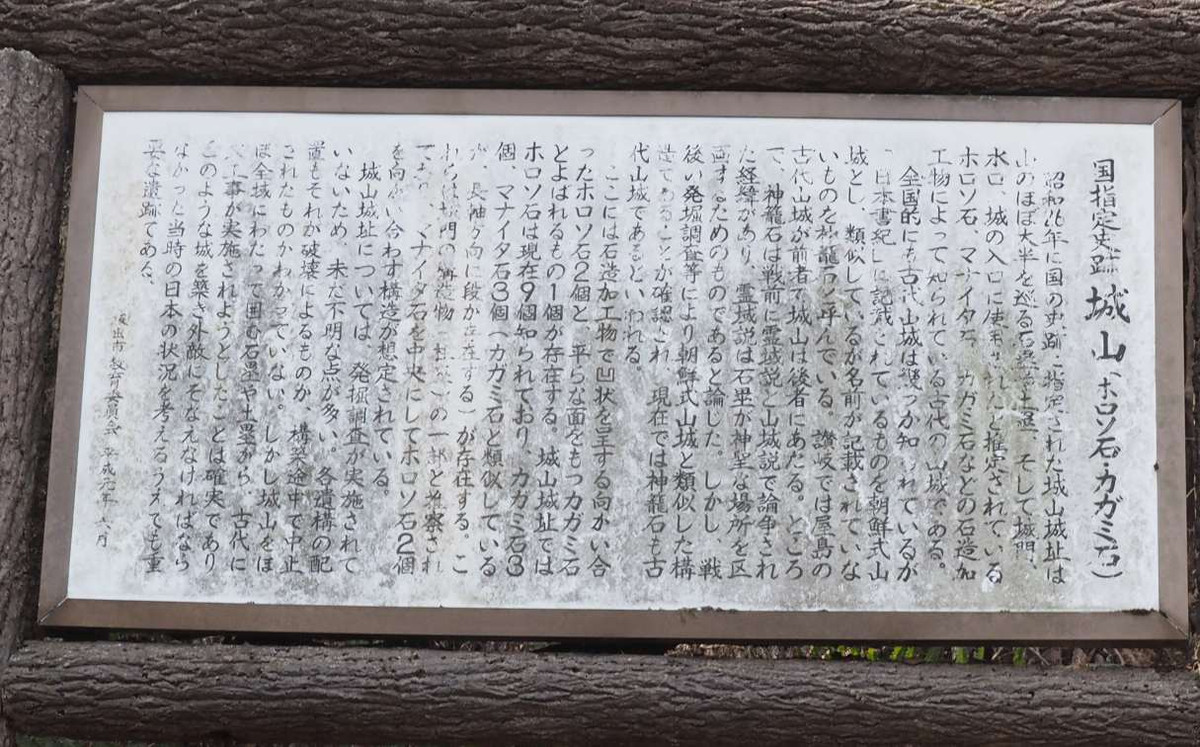 国指定史跡 城山（ホロソ石・カガミ石）
昭和26年に国の史跡に指定された城山城址は
山のほぼ大半を巡る石塁や土塁、そして城門、
水口、城の入口に使用されたと推定されている
ホロソ石、マナイタ石、カガミ石などの石造加
工物によって知られている古代の山城である。
全国的にも古代山城は幾つか知られているが
「日本書紀」に記載されているものを朝鮮式山
城とし、類似しているが名前が記載されていな
いものを神籠石と呼んでいる。讃岐では屋島の
古代山城が前者で城山は後者にあたる。ところ
で、神籠石は戦前に霊域説と山城説で論争され
た経緯があり、霊域説は石塁が神聖な場所を区
画するためのものであると論じた。しかし、戦
後い発掘調査等により朝鮮式山城と類似した構
造であることが確認され、現在では神籠石も古
代山城であるといわれる。
ここには石造加工物で凹状を呈する向かい合
ったホロソ石2個と、平らな面をもつカガミ石
とよばれるもの1個が存在する。城山城址では
ホロソ石は現在9個知られており、カガミ石3
個、マナイタ石3個（カガミ石と類似している
が、長軸方向に段が存在する）が存在する。こ
れらは城門の構造物（）の一部と推察され
ており、マナイタ石を中央にしてホロソ石2個
を向かい合わす構造が想定されている。
城山城址については、発掘調査が実施されて
いないため、未だ不明な点が多い。各遺構の配
置もそれが破壊によるものか、構築途中で中止
されたものかわかっていない。しかし城山をほ
ぼ全域にわたって囲む石塁や土塁から、古代に
大工事が実施されようとしたことは確実であり
このような城を築き外敵にそなえなければなら
なかった当時の日本の状況を考えるうえでも重
要な遺跡である。
坂出市教育委員会 平成元年六月